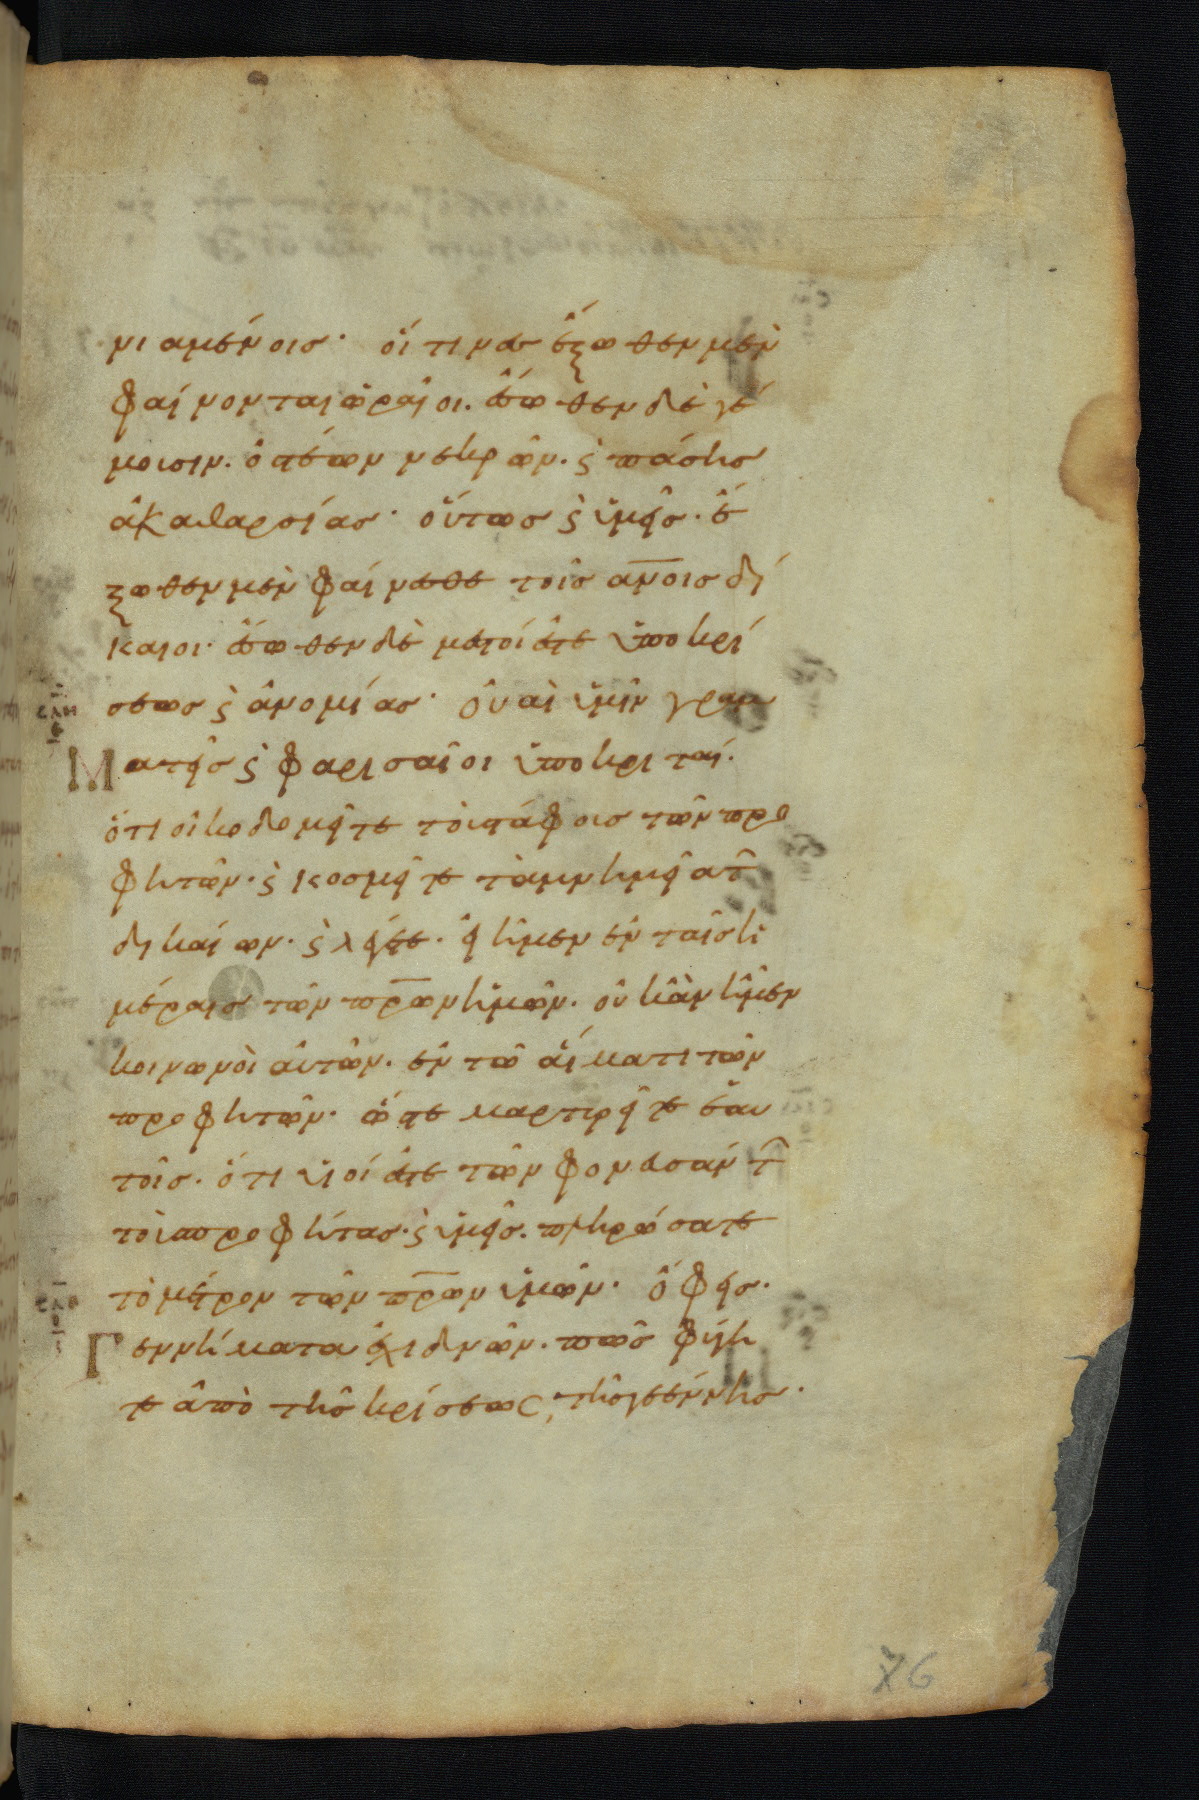 νιαμένοις· οἵτινες ἔξωθεν μὲν
φαίνονται ὡραῖοι. ἔσωθεν δὲ γέ
μουσιν. ὀστέων νεκρῶν. ϛ πάσης
ἀκαθαρσίας· οὕτως ϛ ὑμεῖς. ἔ
ξωθεν μὲν φαίνεσθε τοῖς ανοις δί
καιοι. ἔσωθεν δὲ μεστοί ἐστε ὑποκρί
σεως ϛ ἀνομίας· οὐαὶ ὑμῖν γραμ
Ματεῖς ϛ φαρισαῖοι ὑποκριταί.
ὅτι οἰκοδομεῖτε τοὺς τάφους τῶν προ
φητῶν. ϛ κοσμεῖτε τὰ μνημεῖα τ
δικαίων. ϛ λέγετε. εἰ ἦμεν ἐν ταῖς ἡ
μέραις τῶν πρων ἡμῶν. οὐκ ἂν ἦμεν
κοινωνοὶ αὐτῶν. ἐν τῶ αἵματι τῶν
προφητῶν. ὥστε μαρτυρεῖτε ἑαυ
τοῖς. ὅτι υἱοί ἐστε τῶν φονευσάντ
τοὺς προφήτας. ϛ ὑμεῖς. πληρώσατε
τὸ μέτρον τῶν πρων ὑμῶν. ὄφεις.
Γεννήματα ἐχιδνῶν. πῶς φύγη
τε ἀπὸ τῆς κρίσεως τῆς γεέννης.
76